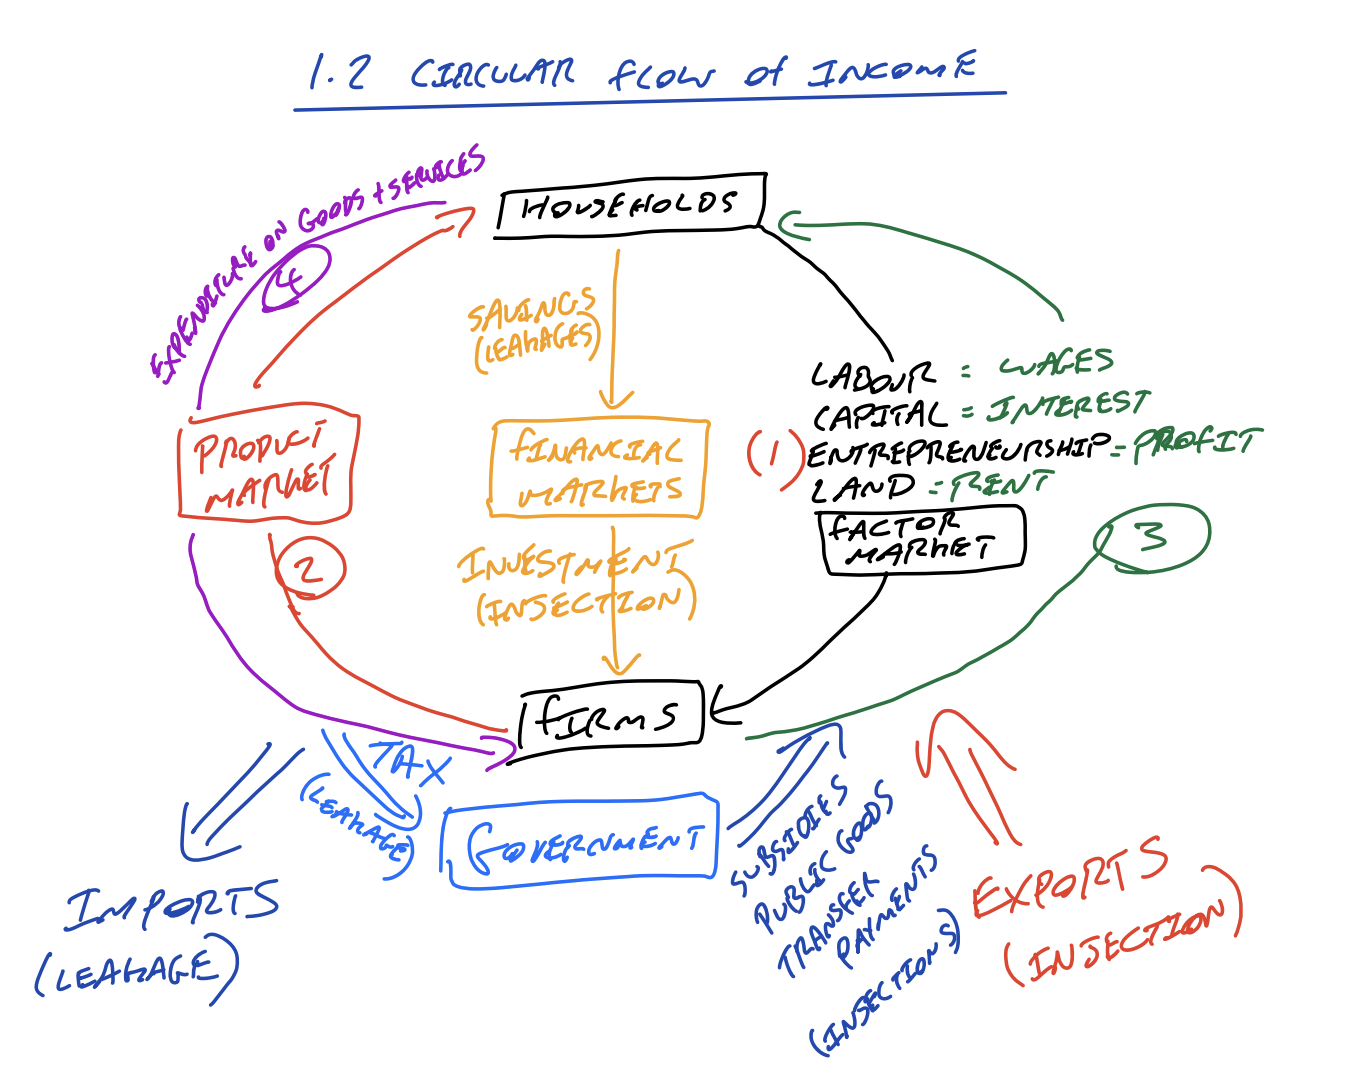 1.2 CIRCULAR FLOW OF INCOME
EXPENDITURE ON GOODS + SERVICES
4
HOUSEHOLDS
SAVINGS
(LEAKAGES)
LABOUR = WAGES
CAPITAL = INTEREST
(1) ENTREPRENEURSHIP = PROFIT
LAND = RENT
PRODUCT
MARKET
FINANCIAL
MARKETS
FACTOR
MARKET
3
2
INVESTMENT
(INJECTION)
FIRMS
TAX
(LEAKAGE)
GOVERNMENT
SUBSIDIES
PUBLIC GOODS
TRANSFER
PAYMENTS
(INJECTIONS)
IMPORTS
(LEAKAGE)
EXPORTS
(INJECTION)